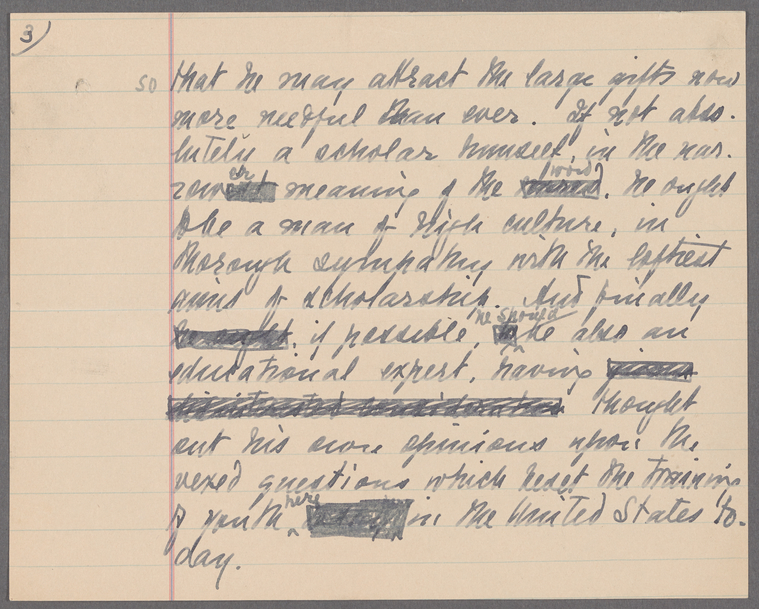 3
so that he may attract the large gifts now
more needful than ever. If not abso-
lutely a scholar himself, in the nar-
rower meaning of the word, he ought
to be a man of high culture, in
thorough sympathy with the loftiest
aims of scholarship. And finally
if possible, he should be also an
educational expert, having
thought
out his own opinions upon the
vexed questions which beset the training
of youth here in the United States to-
day.